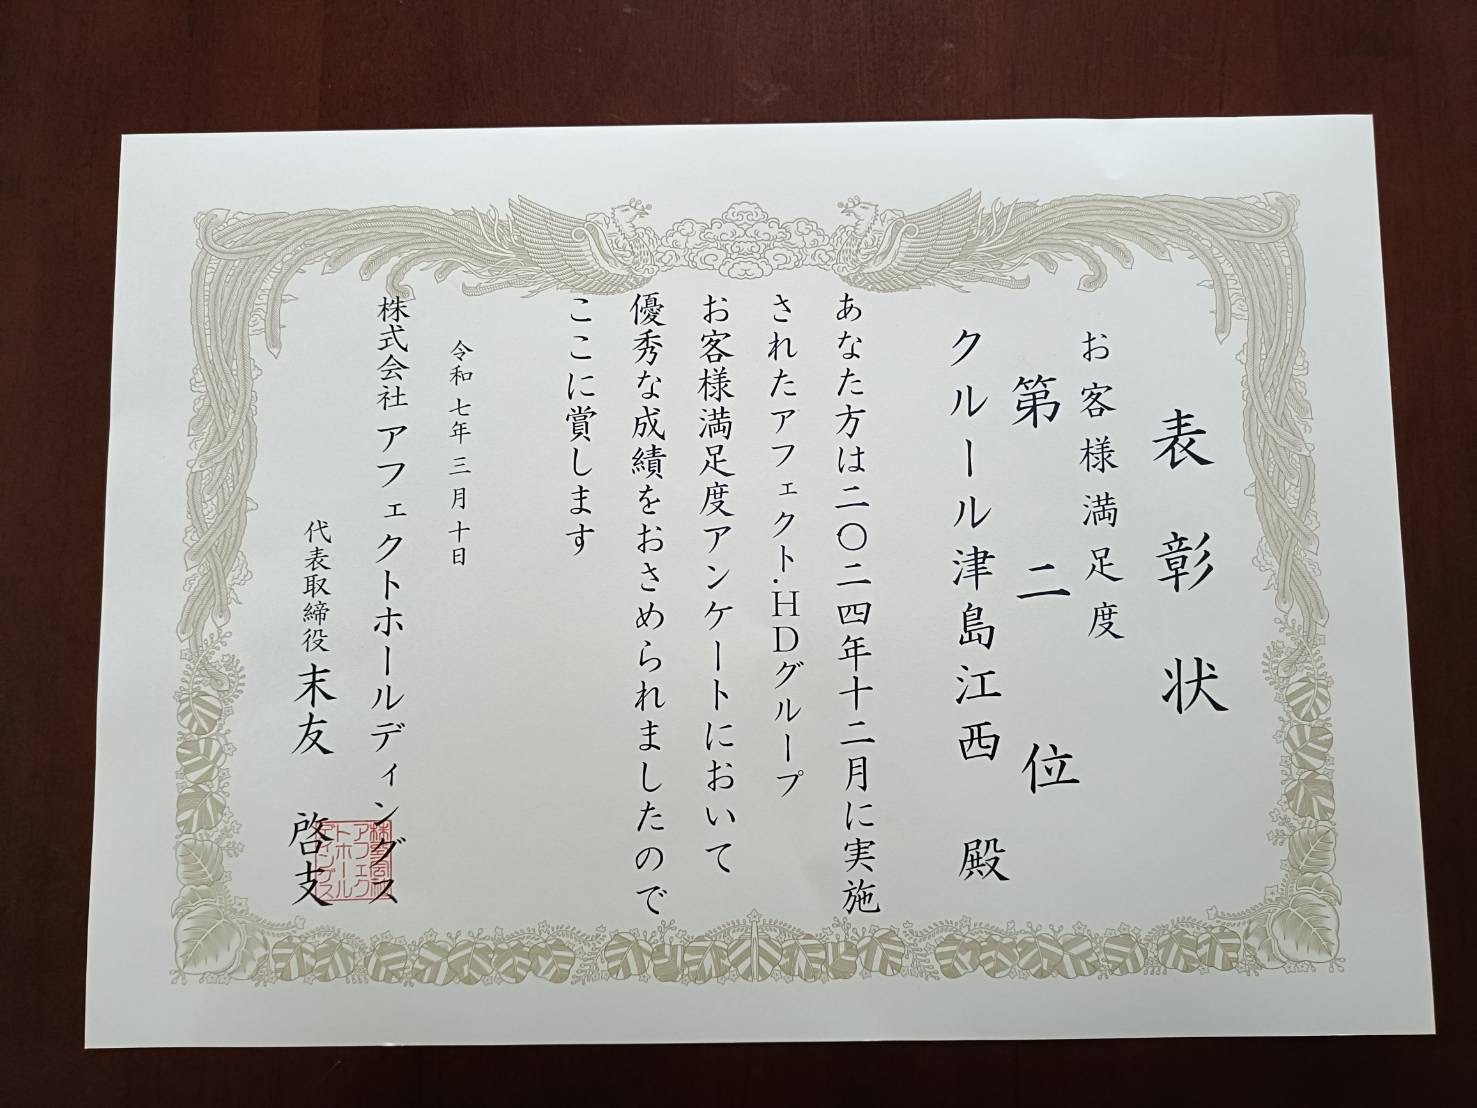 表彰状
お客様満足度
第二位
クルール津島江西 殿
あなた方は二〇二四年十二月に実施
されたアフェクト.HDグループ
お客様満足度アンケートにおいて
優秀な成績をおさめられましたので
ここに賞します
令和七年三月十日
株式会社アフェクトホールディングス
代表取締役 末友 啓支
株式会社
アフェク
トホール
ディングス